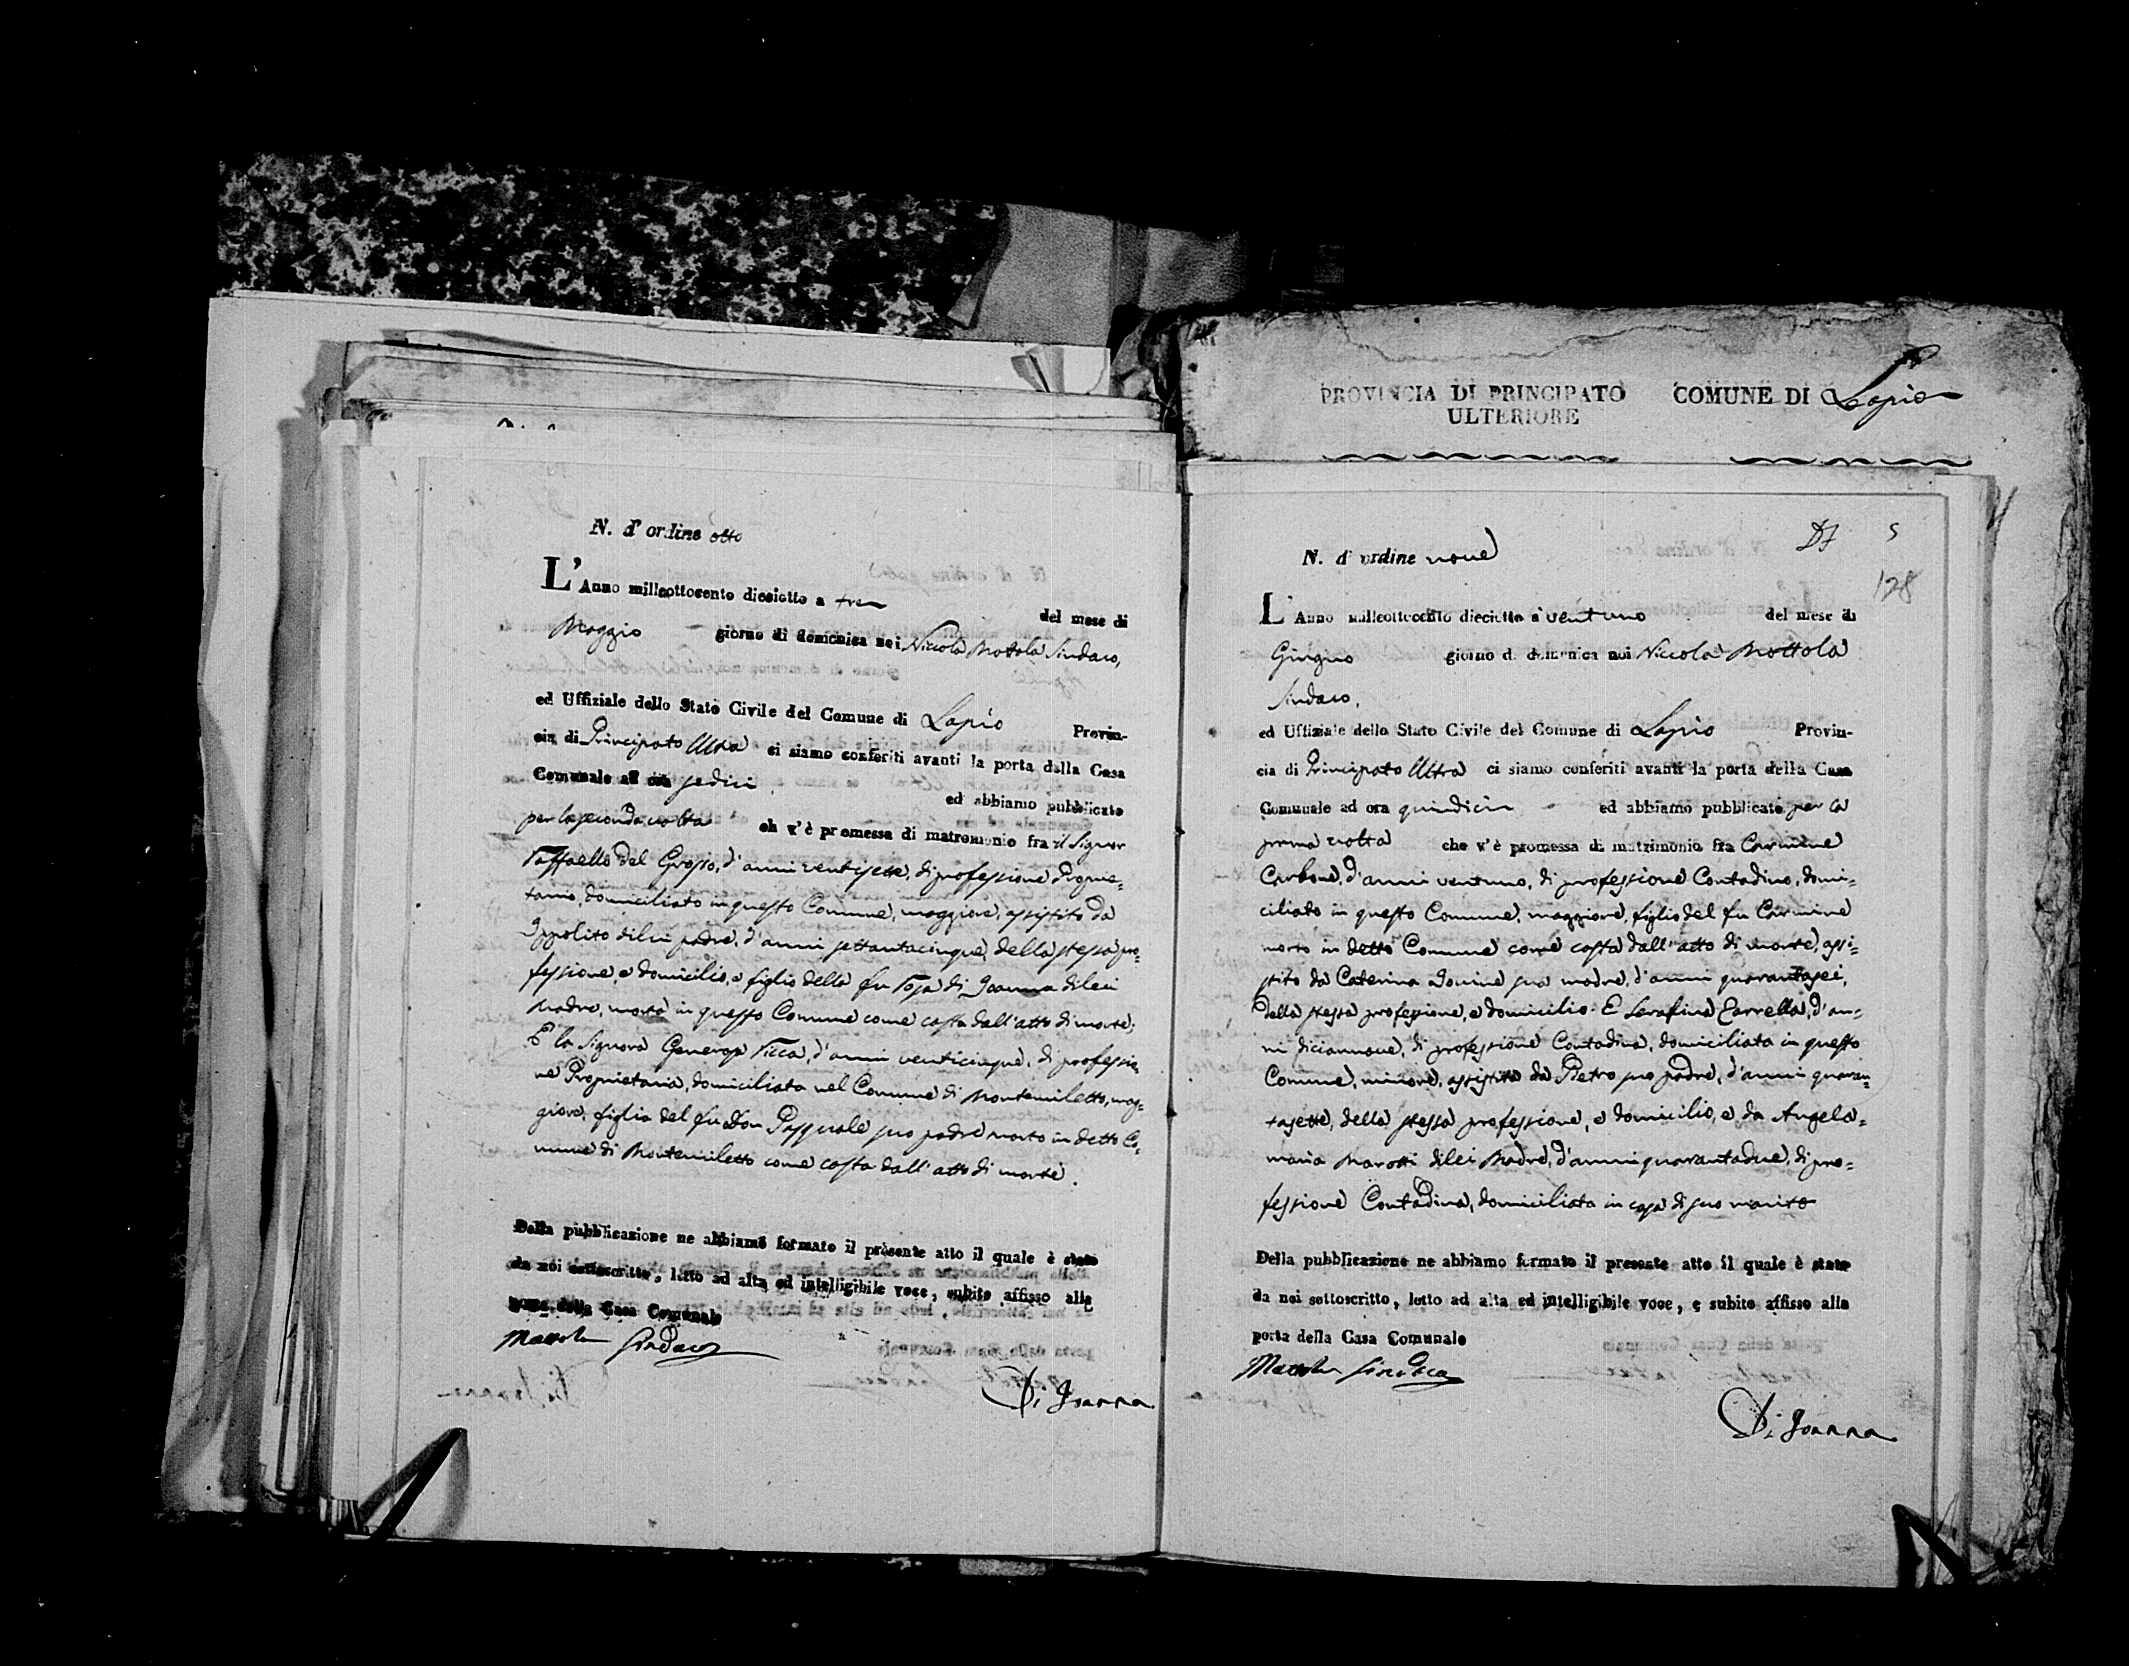 N. d' ordine otto
L'Anno milleottocento dieciotto a tre
del mese di
Maggio giorno di domenica noi Niccola Mottola Sindaco,
ed Uffiziale dello Stato Civile del Comune di Lapio Provin-
cia di Principato Ultra ci siamo conferiti avanti la porta della Casa
Comunale ad ora sedici ed abbiamo pubblicato
per la seconda volta ch v'è promessa di matrimonio fra il Signor
Raffaello del Grosso, d'anni ventisette, di professione Proprie=
tario, domiciliato in questo Comune, maggiore, assistito da
Ippolito di lui padre, d'anni settantacinque, della stessa pro=
fessione, e domicilio, e figlio della fu Rosa di Joanna di lui
Madre, morta in questo Comune come costa dall'atto di morte;
E la Signora Generosa Ricca, d'anni venticinque, di professio
ne Proprietaria, domiciliata nel Comune di Montemiletto, mag=
giore, figlia del fu Don Pasquale suo padre morto in detto Co=
mune di Montemiletto come costa dall'atto di morte.
Della pubblicazione ne abbiamo formato il presente atto il quale è stato
da noi sottoscritto, letto ad alta ed intelligibile voce, subito affisso alla
porta della Casa Comunale
Mottola Sindaco
Di Joanna
PROVINCIA DI PRINCIPATO COMUNE DI Lapio
ULTERIORE
5
N. d' ordine nove
128
L'Anno milleottocento dieciotto a ventuno del mese di
Giugno giorno di domenica noi Niccola Mottola
Sindaco,
ed Uffiziale dello Stato Civile del Comune di Lapio Provin-
cia di Principato Ultra ci siamo conferiti avanti la porta della Casa
Comunale ad ora quindici ed abbiamo pubblicato per la
prima volta che v'è promessa di matrimonio fra Carmine
Carbone, d'anni ventuno, di professione Contadino, domi=
ciliato in questo Comune, maggiore, figlio del fu Carmine
morto in detto Comune come costa dall'atto di morte, assi=
stito da Caterina Iovine sua madre, d'anni quarantasei,
della stessa professione, e domicilio. E Serafina Carrella, d'an=
ni diciannove, di professione Contadina, domiciliata in questo
Comune, minore, assistita da Pietro suo padre, d'anni quaran=
tasette, della stessa professione, e domicilio, e da Angela=
maria Marotti di lei Madre, d'anni quarantadue, di pro=
fessione Contadina, domiciliata in casa di suo marito
Della pubblicazione ne abbiamo formato il presente atto il quale è stato
da noi sottoscritto, letto ad alta ed intelligibile voce, e subito affisso alla
porta della Casa Comunale
Mottola Sindaco
Di Joanna